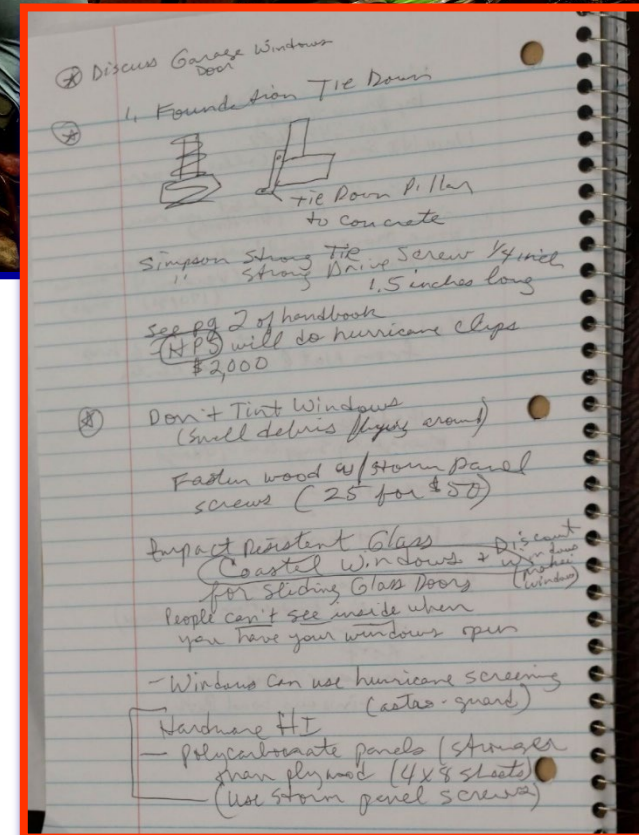 Discuss Garage Windows
Door
1. Foundation Tie Down
Tie Down Pillar
to concrete
Simpson Strong Tie Screw 1/4 inch
" Strong Drive
1.5 inches long
see pg 2 of handbook
- HPS will do hurricane clips
$2,000
Don't Tint Windows
(Small debris flying around)
Fasten wood w/ storm panel
screws (25 for $50)
Impact Resistent Glass
Coastal Windows + Discount
windows
for Sliding Glass Doors
window)
People can't see inside when
you have your windows open
- Windows can use hurricane screening
(astro-guard)
Hardware HI
- polycarbonate panels (stronger
than plywood (4x8 sheets)
(use storm panel screws)